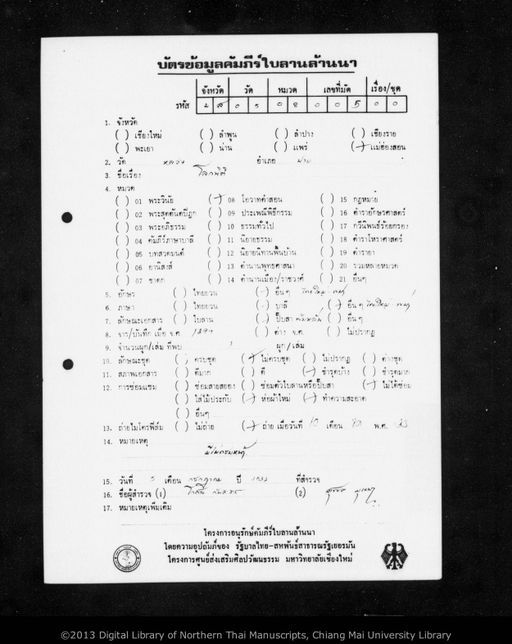 บัตรข้อมูลคัมภีร์ใบลานล้านนา
จังหวัด วัด หมวด เลขที่มัด เรื่อง/ชุด
รหัส 0 5 0 8 0 0 5 0 0
1. จังหวัด
( ) เชียงใหม่ ( ) ลำพูน ( ) ลำปาง ( ) เชียงราย
( ) พะเยา ( ) น่าน ( ) แพร่ ( ) แม่ฮ่องสอน
2. วัด อำเภอ
3. ชื่อเรื่อง
4. หมวด
( ) 01 พระวินัย ( ) 08 โอวาทคำสอน ( ) 15 กฎหมาย
( ) 02 พระสุตตันตปิฎก ( ) 09 ประเพณีพิธีกรรม ( ) 16 ตำรายักษรศาสตร์
( ) 03 พระอภิธรรม ( ) 10 ธรรมทั่วไป ( ) 17 กวีนิพนธ์ร้อยกรอง
( ) 04 คัมภีร์ภาษาบาลี ( ) 11 นิยายธรรม ( ) 18 ตำราโหราศาสตร์
( ) 05 บทสวดมนต์ ( ) 12 นิยายนิทานพื้นบ้าน ( ) 19 ตำรายา
( ) 06 อานิสงส์ ( ) 13 ตำนานพุทธศาสนา ( ) 20 รวมหลายหมวด
( ) 07 ชาดก ( ) 14 ตำนานเมือง/ราชวงศ์ ( ) 21 อื่นๆ
5. อักษร ( ) ไทยยวน ( ) อื่นๆ
6. ภาษา ( ) ไทยยวน ( ) บาลี ( ) อื่นๆ
7. ลักษณะเอกสาร ( ) ใบลาน ( ) ปั๊บสา ( ) อื่นๆ
8. จาร/บันทึก เมื่อ จ.ศ. ( ) ค่าง จ.ศ. ( ) ไม่ปรากฏ
9. จำนวนผูก/เล่ม ที่พบ ผูก/เล่ม
10. ลักษณะชุด ( ) ครบชุด ( ) ไม่ครบชุด ( ) ไม่ปรากฏ ( ) ต่างชุด
11. สภาพเอกสาร ( ) ดีมาก ( ) ดี ( ) ชำรุดบ้าง ( ) ชำรุดมาก
12. การซ่อมแซม ( ) ซ่อมสายสยอง ( ) ซ่อมตัวใบลานหรือปั๊บสา ( ) ไม่ได้ซ่อม
( ) ใส่ไม้ประกับ ( ) ห่อผ้าใหม่ ( ) ทำความสะอาด
( ) อื่นๆ
13. ถ่ายไมโครฟิล์ม ( ) ไม่ถ่าย ( ) ถ่าย เมื่อวันที่ 10 เดือน พ.ศ.
14. หมายเหตุ
15. วันที่ 5 เดือน กรกฎาคม ปี ที่สำรวจ
16. ชื่อผู้สำรวจ (1) (2)
17. หมายเหตุเพิ่มเติม
โครงการอนุรักษ์คัมภีร์ใบลานล้านนา
โดยความอุปถัมภ์ของ รัฐบาลไทย-สหพันธ์สาธารณรัฐเยอรมัน
โครงการศูนย์ส่งเสริมศิลปวัฒนธรรม มหาวิทยาลัยเชียงใหม่
©2013 Digital Library of Northern Thai Manuscripts, Chiang Mai University Library